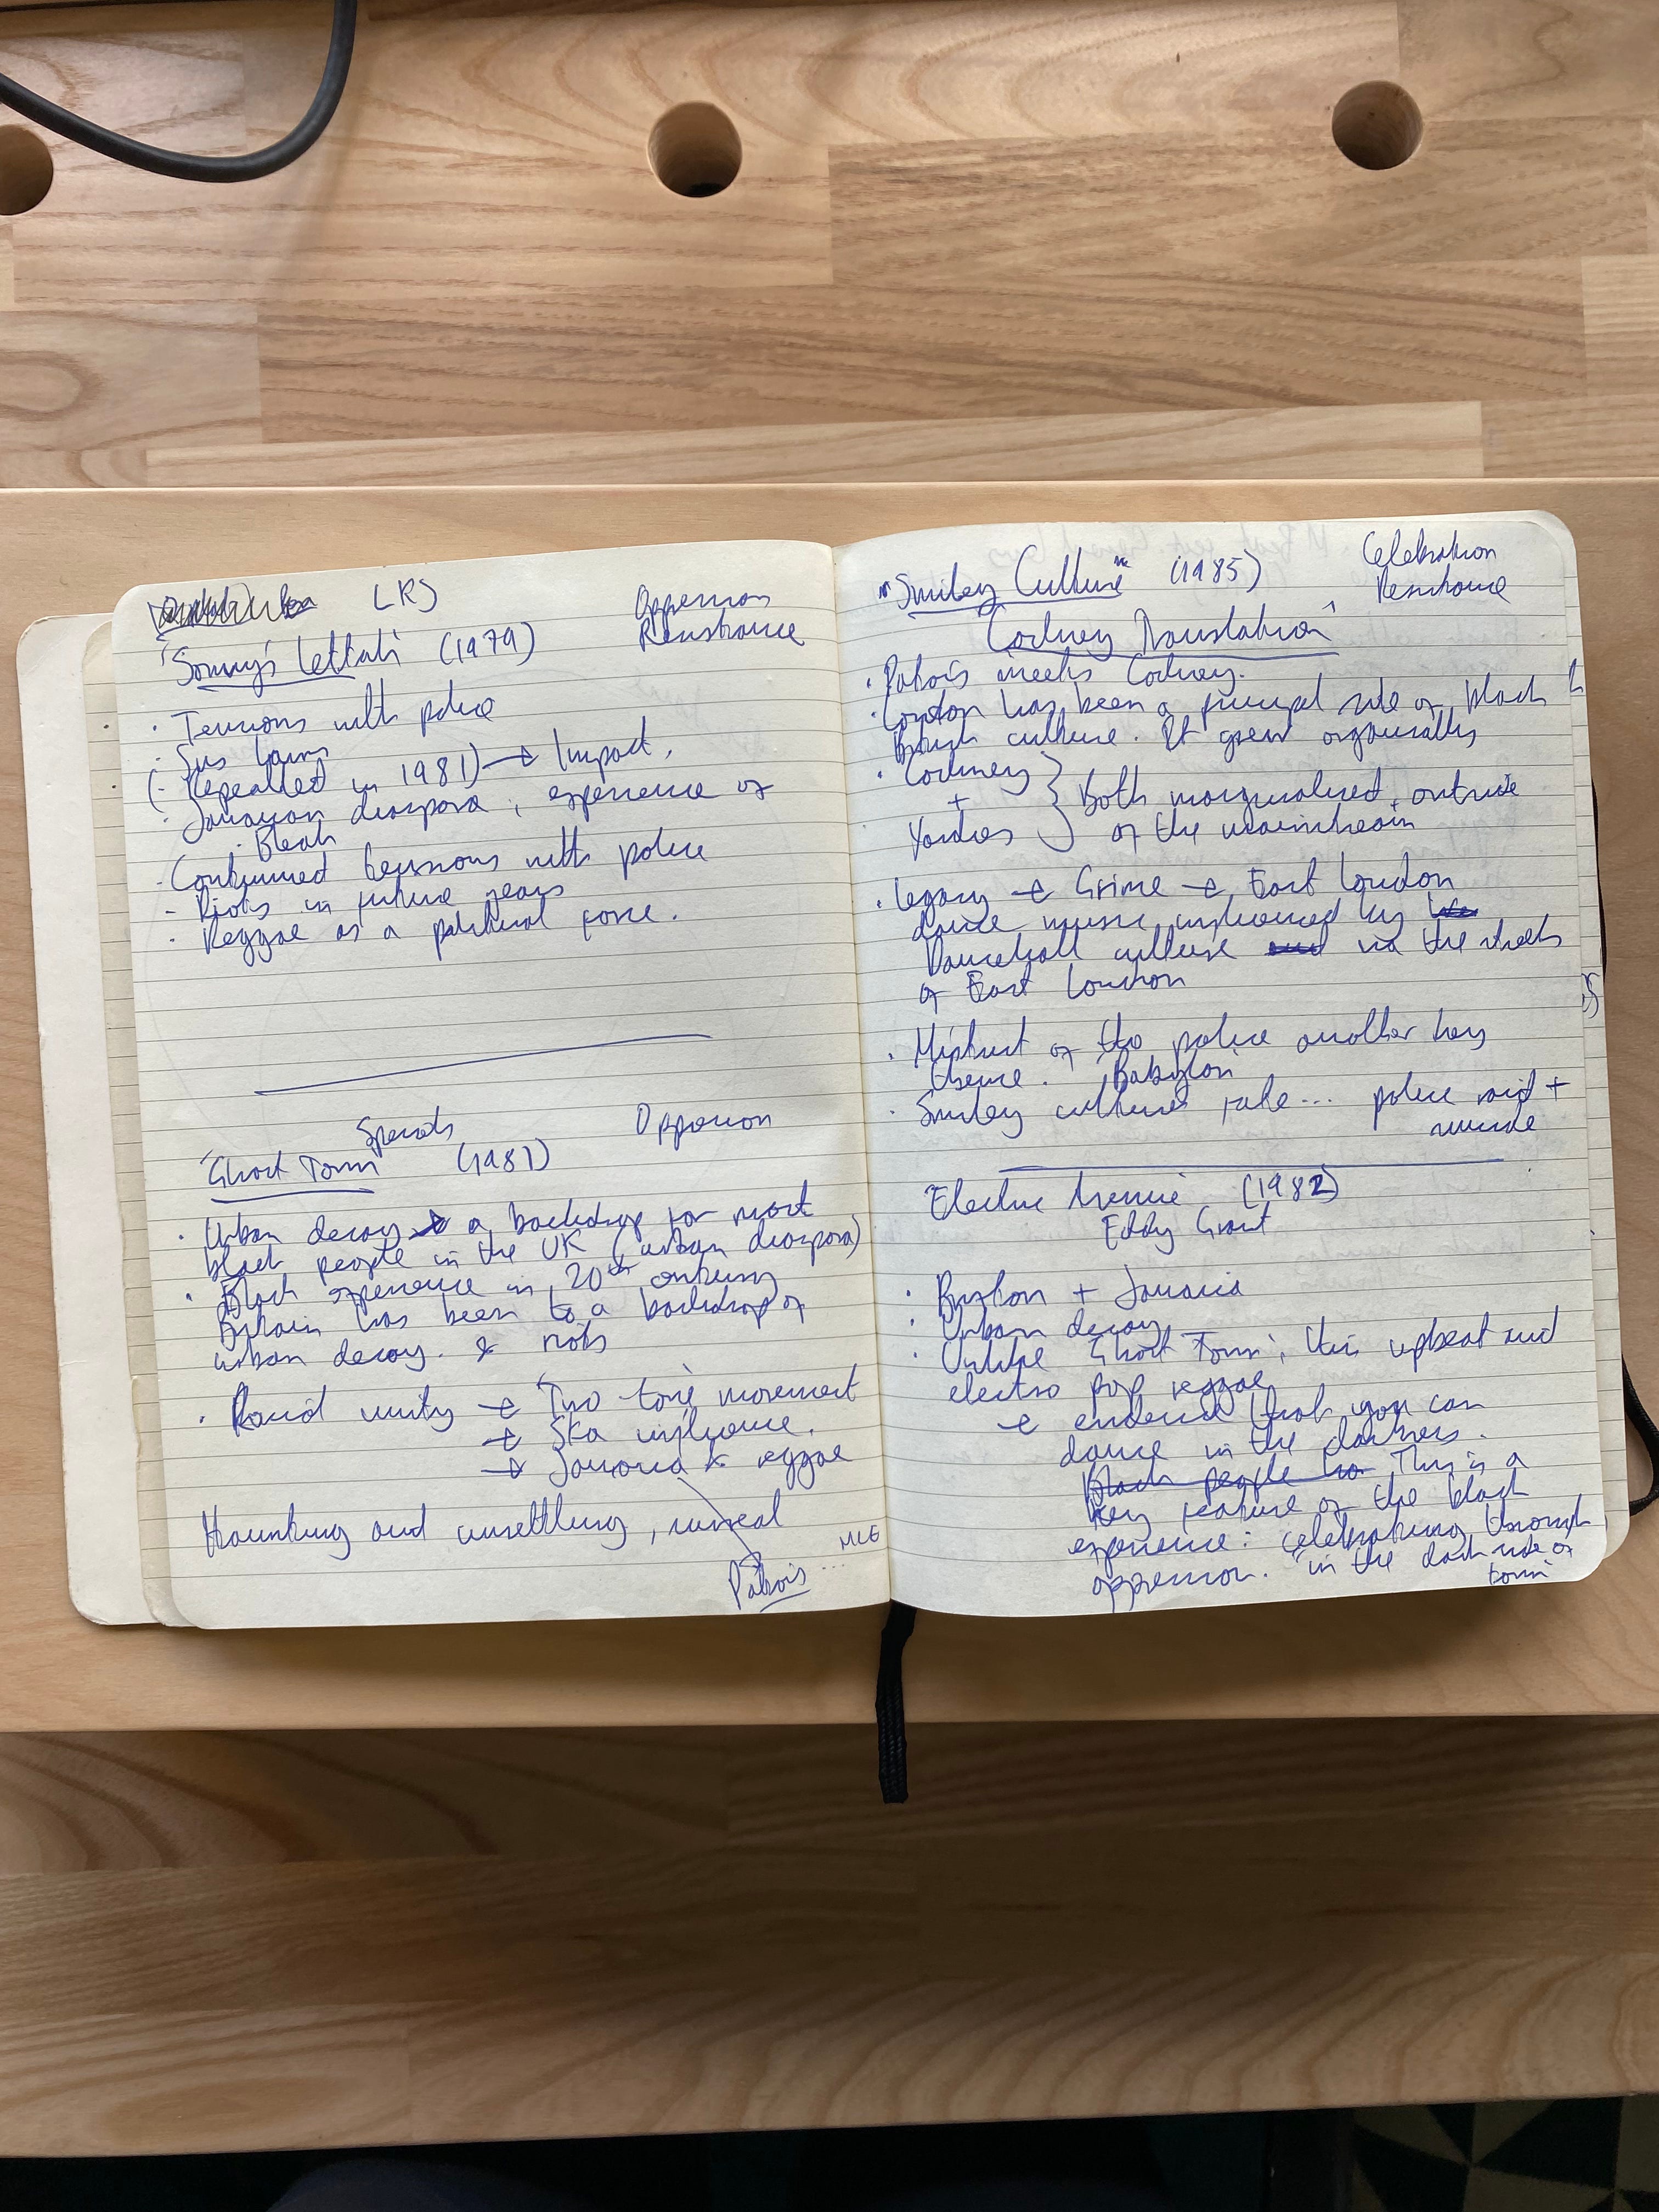 LKJ
Oppression
Resistance
'Sonny's Lettah' (1979)
· Tensions with police
· Sus laws
(· Repealled in 1981) → Impact.
· Jamaican diaspora, experience of
· Bleak
- Continued tensions with police
- Riots in future years
· Reggae as a political force.
Specials
Oppression
'Ghost Town' (1981)
· Urban decay → a backdrop for most
black people in the UK (urban diaspora)
· Black experience in 20th century
Britain has been to a backdrop of
urban decay. & riots
· Racial unity → 'Two tone' movement
→ Ska influence.
→ Jamaica & reggae
Haunting and unsettling, unreal
Patois ... MLE
"Smiley Culture" (1985)
Celebration
Resistance
'Cockney Translation'
· Patois meets Cockney.
· London has been a principal site of black
British culture. It grew organically
· Cockney
+
Yardies
Both marginalised, outside
of the mainstream
· Legacy → Grime → East London
dance music influenced by
Dancehall culture via the streets
of East London
· Mistrust of the police another key
theme. 'Babylon'
· Smiley culture's fate... police raid +
Electric Avenue (1982)
Eddy Grant
· Brixton + Jamaica
· Urban decay
· Unlike 'Ghost Town', this upbeat and
electro pop reggae
→ evidence that you can
dance in the darkness.
Black people ha This is a
key feature of the black
experience: celebrating through
oppression. "in the dark side of
town"